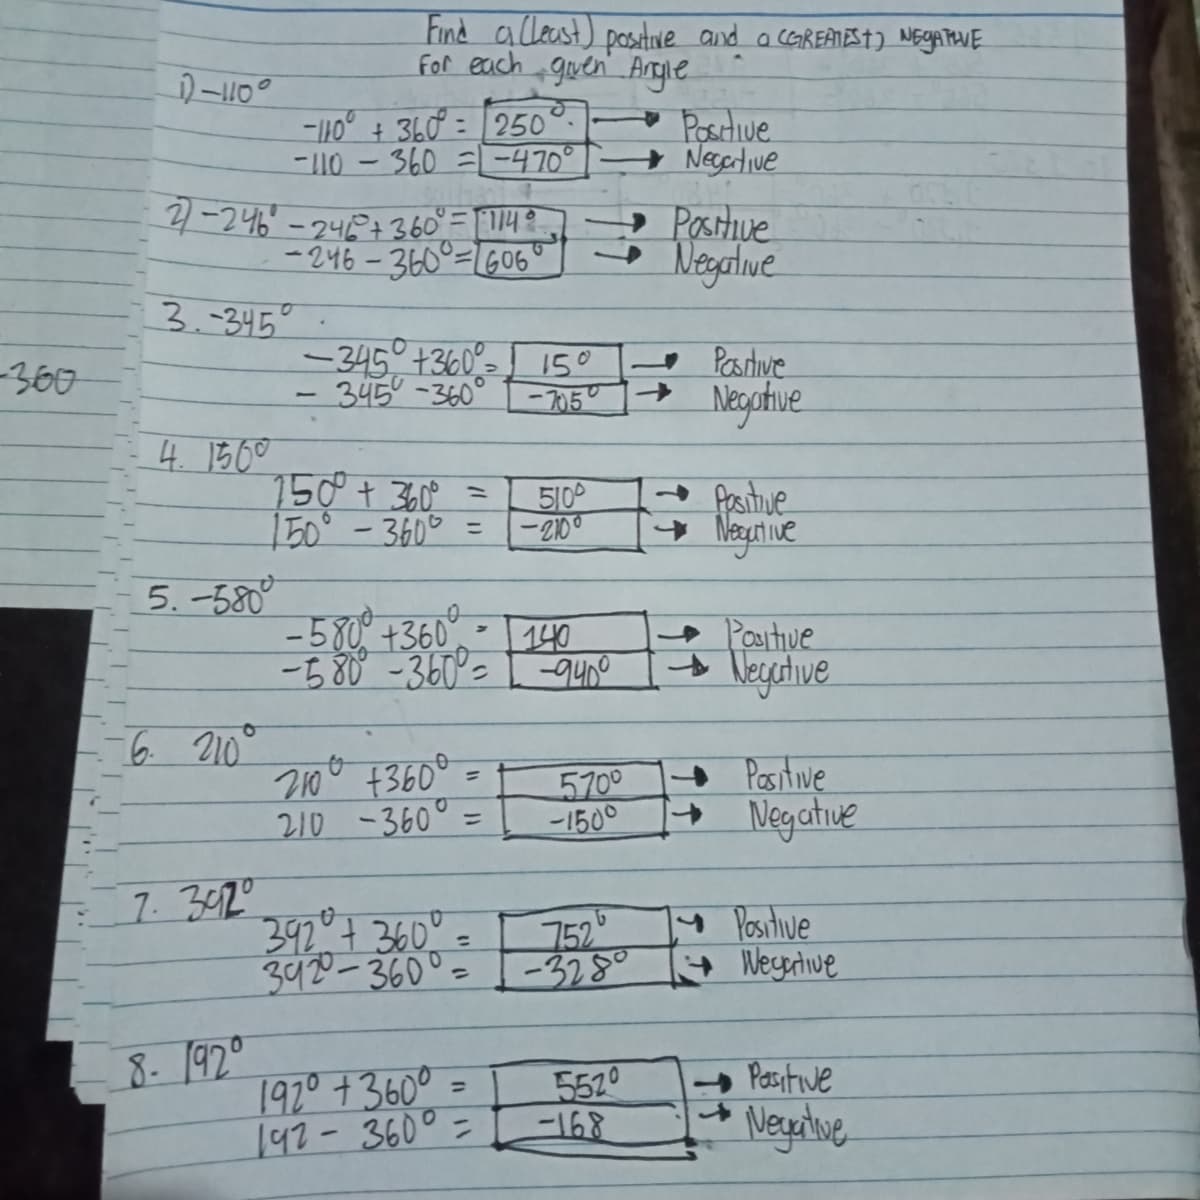 Find a (least) positive and a (GREATEST) NEGATIVE
For each given Angle
1) -110°
-110° + 360° = 250° → Positive
-110 - 360 = -470° → Negative
2) -246° -246° + 360° = 114° → Positive
-246 - 360° = 606° → Negative
3. -345°
-345° + 360° = 15° → Positive
-360
- 345° - 360° -705° → Negative
4. 150°
150° + 360° = 510° → Positive
150° - 360° = -210° → Negative
5. -580°
-580° + 360° = 140 → Positive
-580° - 360° = -940° → Negative
6. 210°
210° + 360° = 570° → Positive
210 - 360° = -150° → Negative
7. 392°
392° + 360° = 752° → Positive
392° - 360° = -328° → Negative
8. 192°
192° + 360° = 552° → Positive
192 - 360° = -168 → Negative